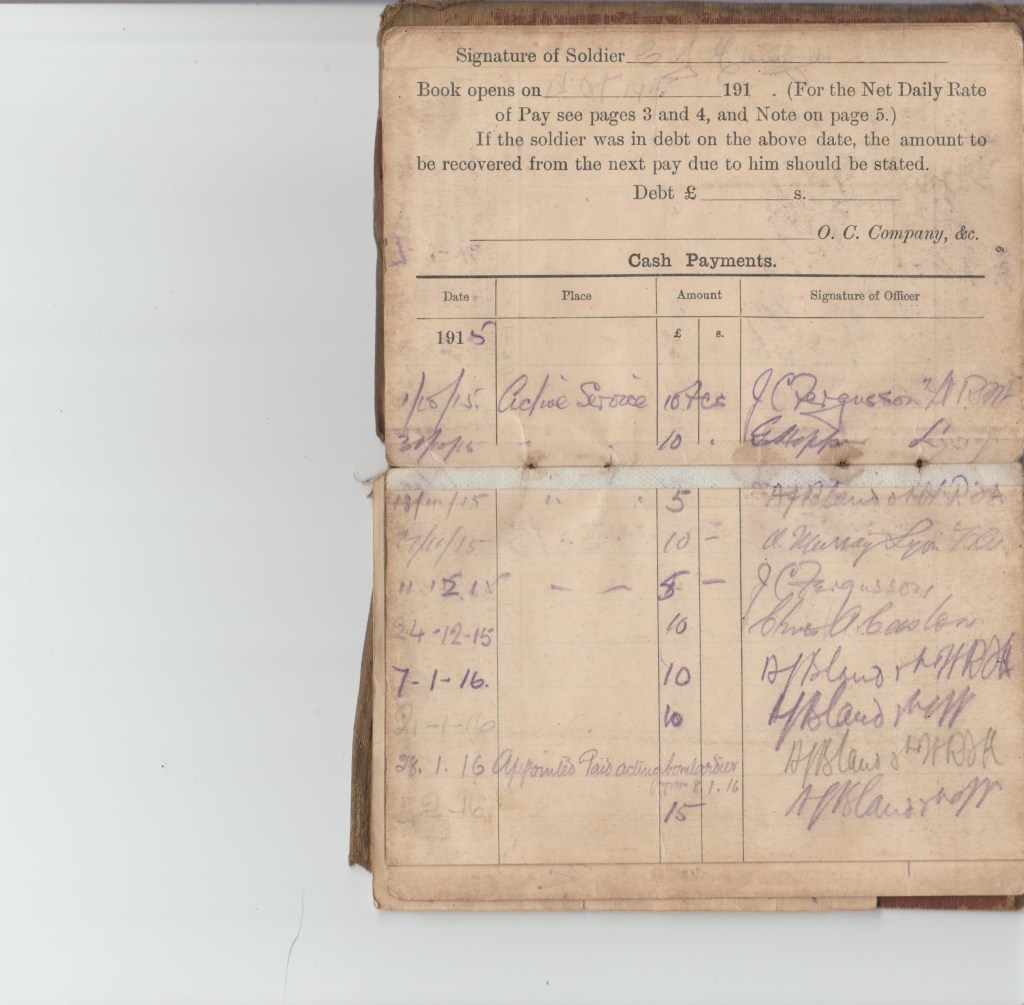 Signature of Soldier
Book opens on 191 . (For the Net Daily Rate
of Pay see pages 3 and 4, and Note on page 5.)
If the soldier was in debt on the above date, the amount to
be recovered from the next pay due to him should be stated.
Debt £ s.
O. C. Company, &c.
6
Cash Payments.
Date Place Amount Signature of Officer
1915 £ s.
1/10/15. Active Service 10 J C Fergusson
10
5 A J Bland
27/11/15 10 – A. Murray Lyon
5 – J C Fergusson
24-12-15 10 Chas A.
7-1-16. 10 A J Bland
21-1-16 10 A J Bland
28. 1. 16 Appointed Paid acting bombardier A J Bland
from 8. 1. 16
15 A J Bland